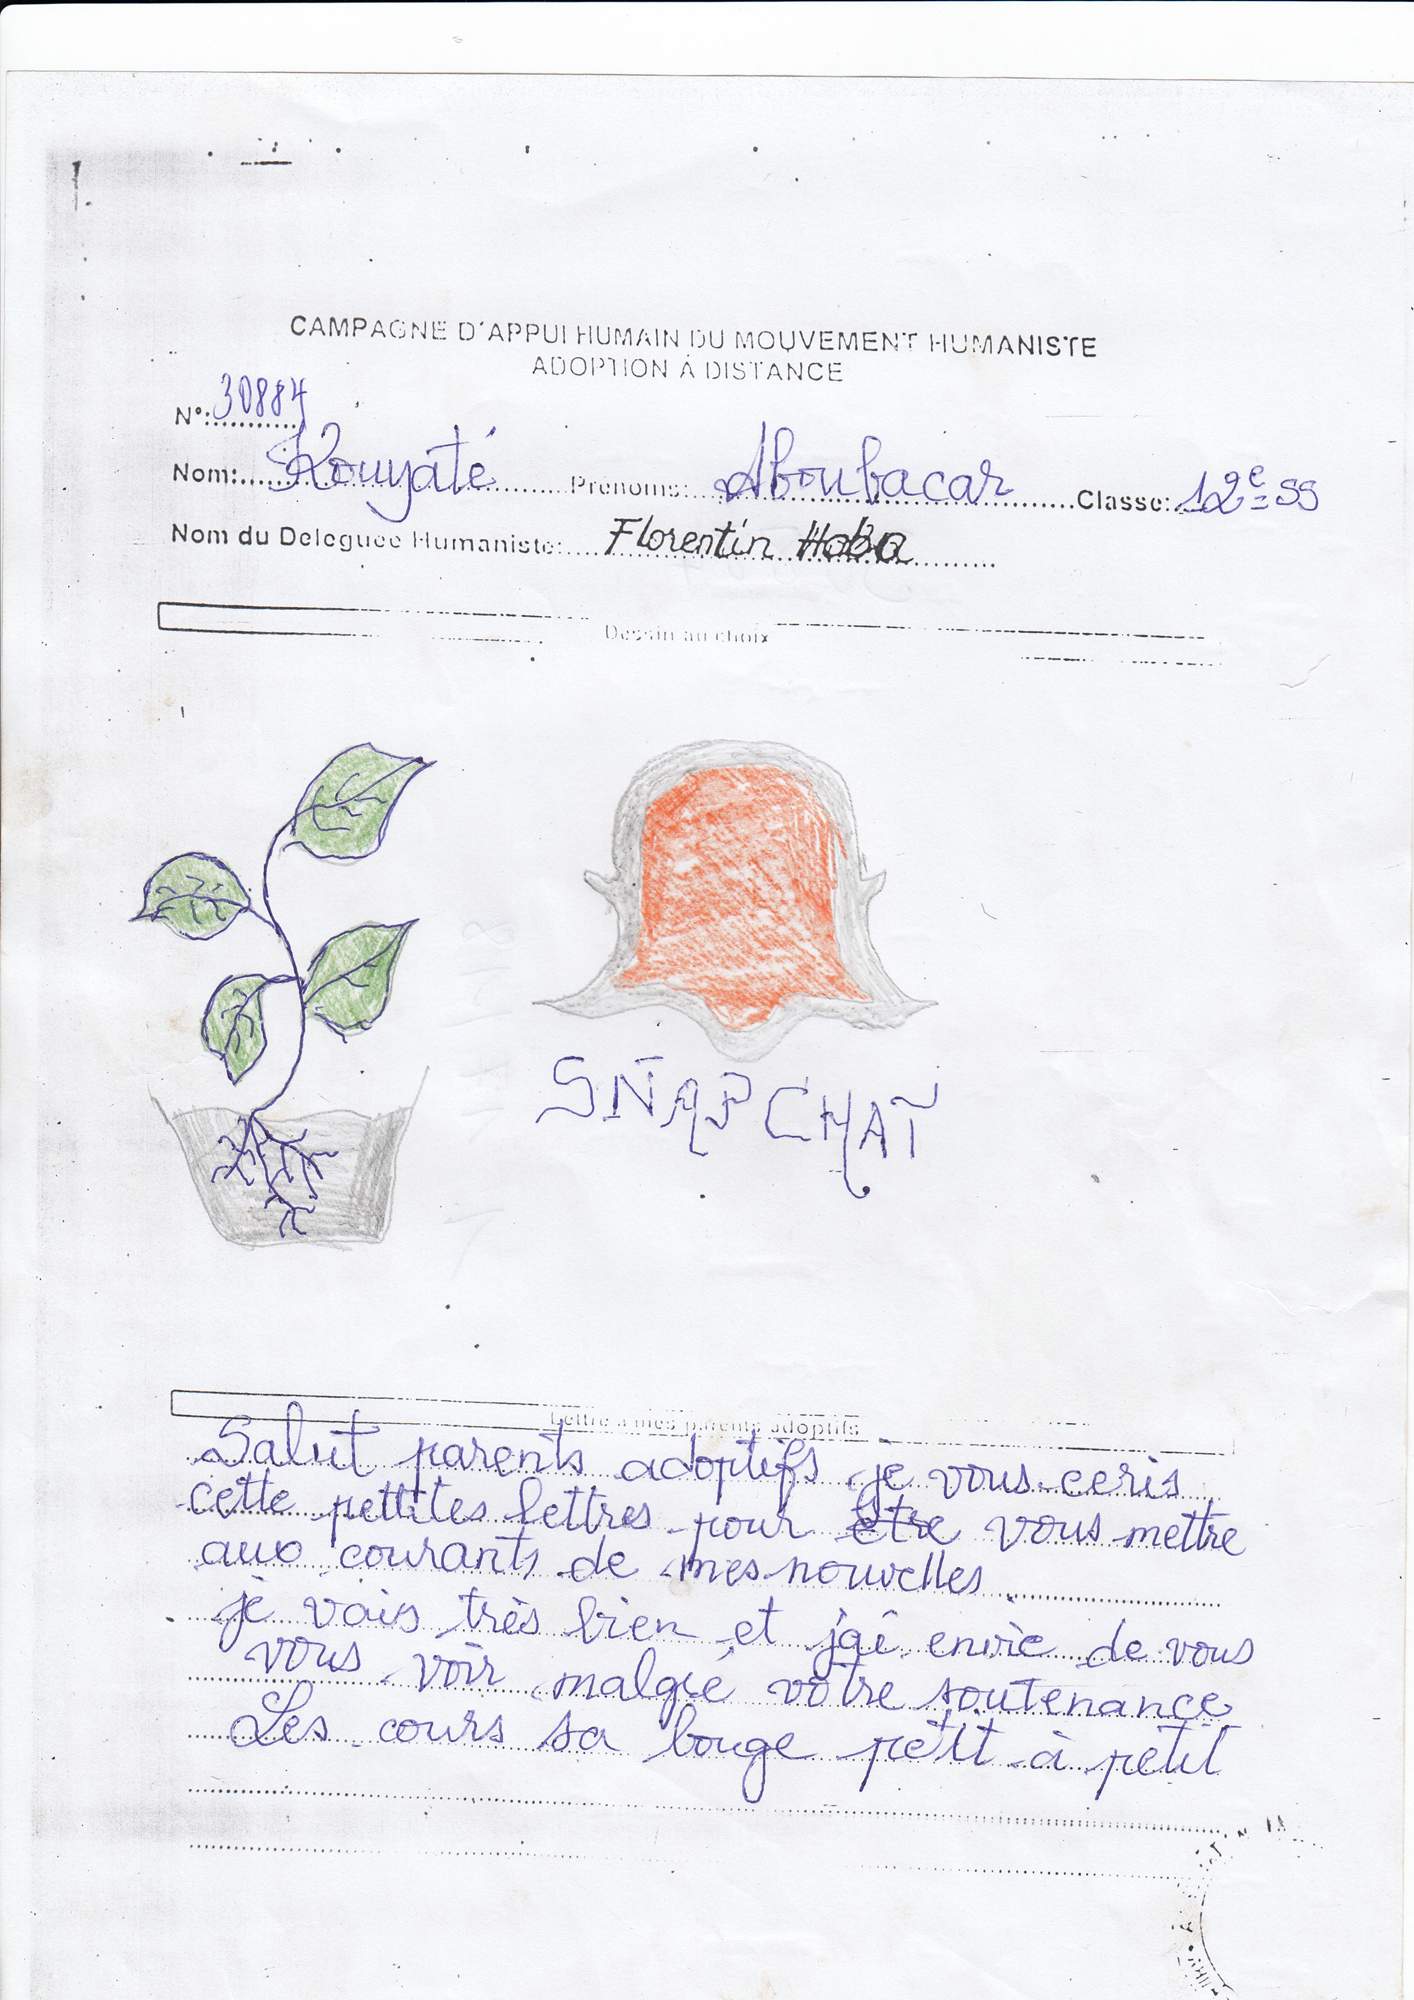 CAMPAGNE D'APPUI HUMAIN DU MOUVEMENT HUMANISTE
ADOPTION À DISTANCE
N°: 30884
Nom: Kouyaté Prénoms: Aboubacar Classe: 12e SS
Nom du Deleguée Humaniste: Florentin Haba
Dessin au choix
SNAPCHAT
Lettre à mes parents adoptifs
Salut parents adoptifs je vous ceris
cette pettites lettres pour être vous mettre
aux courants de mes nouvelles
je vais très bien et j'ai envie de vous
vous voir malgré votre soutenance
Les cours sa bouge petit à petit